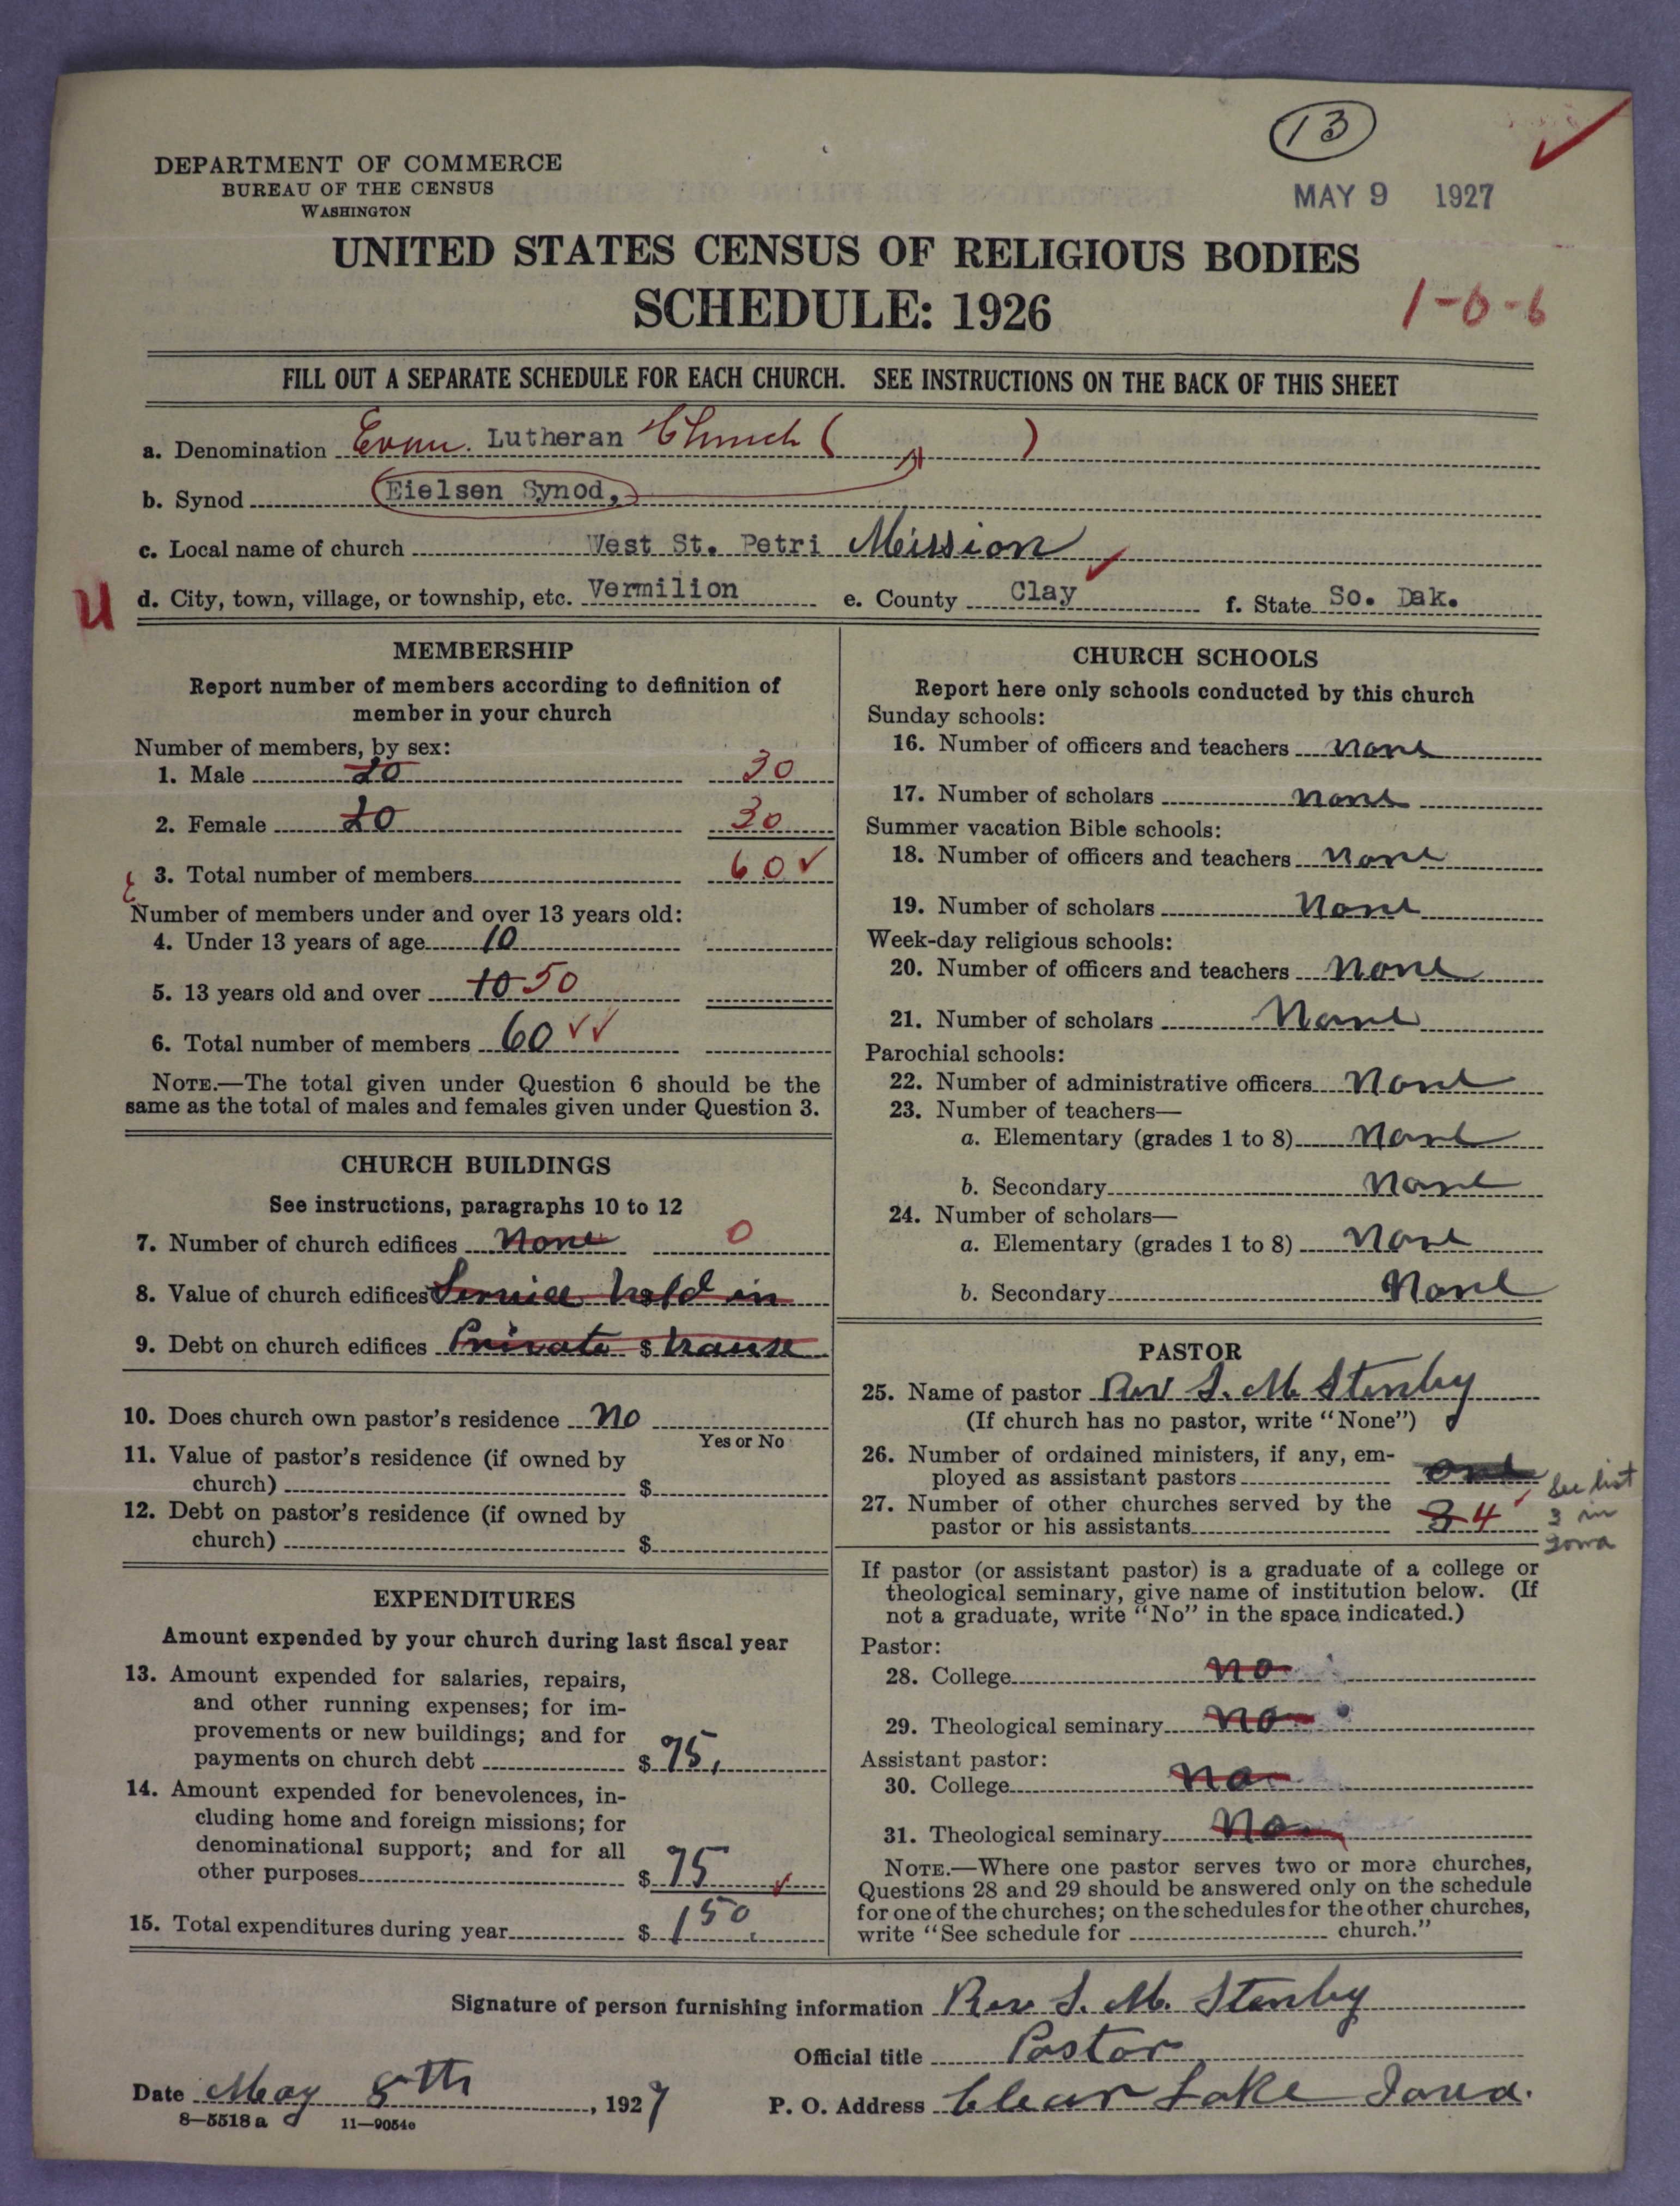 13
MAY 9 1927
DEPARTMENT OF COMMERCE
BUREAU OF THE CENSUS
WASHINGTON
UNITED STATES CENSUS OF RELIGIOUS BODIES
SCHEDULE: 1926
1-0-6
FILL OUT A SEPARATE SCHEDULE FOR EACH CHURCH. SEE INSTRUCTIONS ON THE BACK OF THIS SHEET
a. Denomination Evan. Lutheran Church ( )
b. Synod Eielsen Synod,
c. Local name of church West St. Petri Mission
U d. City, town, village, or township, etc. Vermilion e. County Clay f. State So. Dak.
MEMBERSHIP
Report number of members according to definition of
member in your church
Number of members, by sex:
1. Male 20 30
2. Female 20 30
3. Total number of members 60
Number of members under and over 13 years old:
4. Under 13 years of age 10
5. 13 years old and over 10 50
6. Total number of members 60
NOTE.—The total given under Question 6 should be the
same as the total of males and females given under Question 3.
CHURCH BUILDINGS
See instructions, paragraphs 10 to 12
7. Number of church edifices None 0
8. Value of church edifices Service hold in
9. Debt on church edifices Private $ house
10. Does church own pastor's residence no
Yes or No
11. Value of pastor's residence (if owned by
church) $
12. Debt on pastor's residence (if owned by
church) $
EXPENDITURES
Amount expended by your church during last fiscal year
13. Amount expended for salaries, repairs,
and other running expenses; for im-
provements or new buildings; and for
payments on church debt $ 75,
14. Amount expended for benevolences, in-
cluding home and foreign missions; for
denominational support; and for all
other purposes $ 75
15. Total expenditures during year $ 150.
CHURCH SCHOOLS
Report here only schools conducted by this church
Sunday schools:
16. Number of officers and teachers none
17. Number of scholars none
Summer vacation Bible schools:
18. Number of officers and teachers none
19. Number of scholars none
Week-day religious schools:
20. Number of officers and teachers none
21. Number of scholars None
Parochial schools:
22. Number of administrative officers None
23. Number of teachers—
a. Elementary (grades 1 to 8) none
b. Secondary none
24. Number of scholars—
a. Elementary (grades 1 to 8) none
b. Secondary None
PASTOR
25. Name of pastor Rev S. M. Stenby
(If church has no pastor, write "None")
26. Number of ordained ministers, if any, em-
ployed as assistant pastors one
27. Number of other churches served by the
pastor or his assistants 3 4
See list
3 in
Iowa
If pastor (or assistant pastor) is a graduate of a college or
theological seminary, give name of institution below. (If
not a graduate, write "No" in the space indicated.)
Pastor:
28. College no
29. Theological seminary no
Assistant pastor:
30. College no
31. Theological seminary No
NOTE.—Where one pastor serves two or more churches,
Questions 28 and 29 should be answered only on the schedule
for one of the churches; on the schedules for the other churches,
write "See schedule for church."
Signature of person furnishing information Rev S. M. Stenby
Official title Pastor
Date May 8th, 1927 P. O. Address Clear Lake Iowa.
8—5518 a 11—9054e